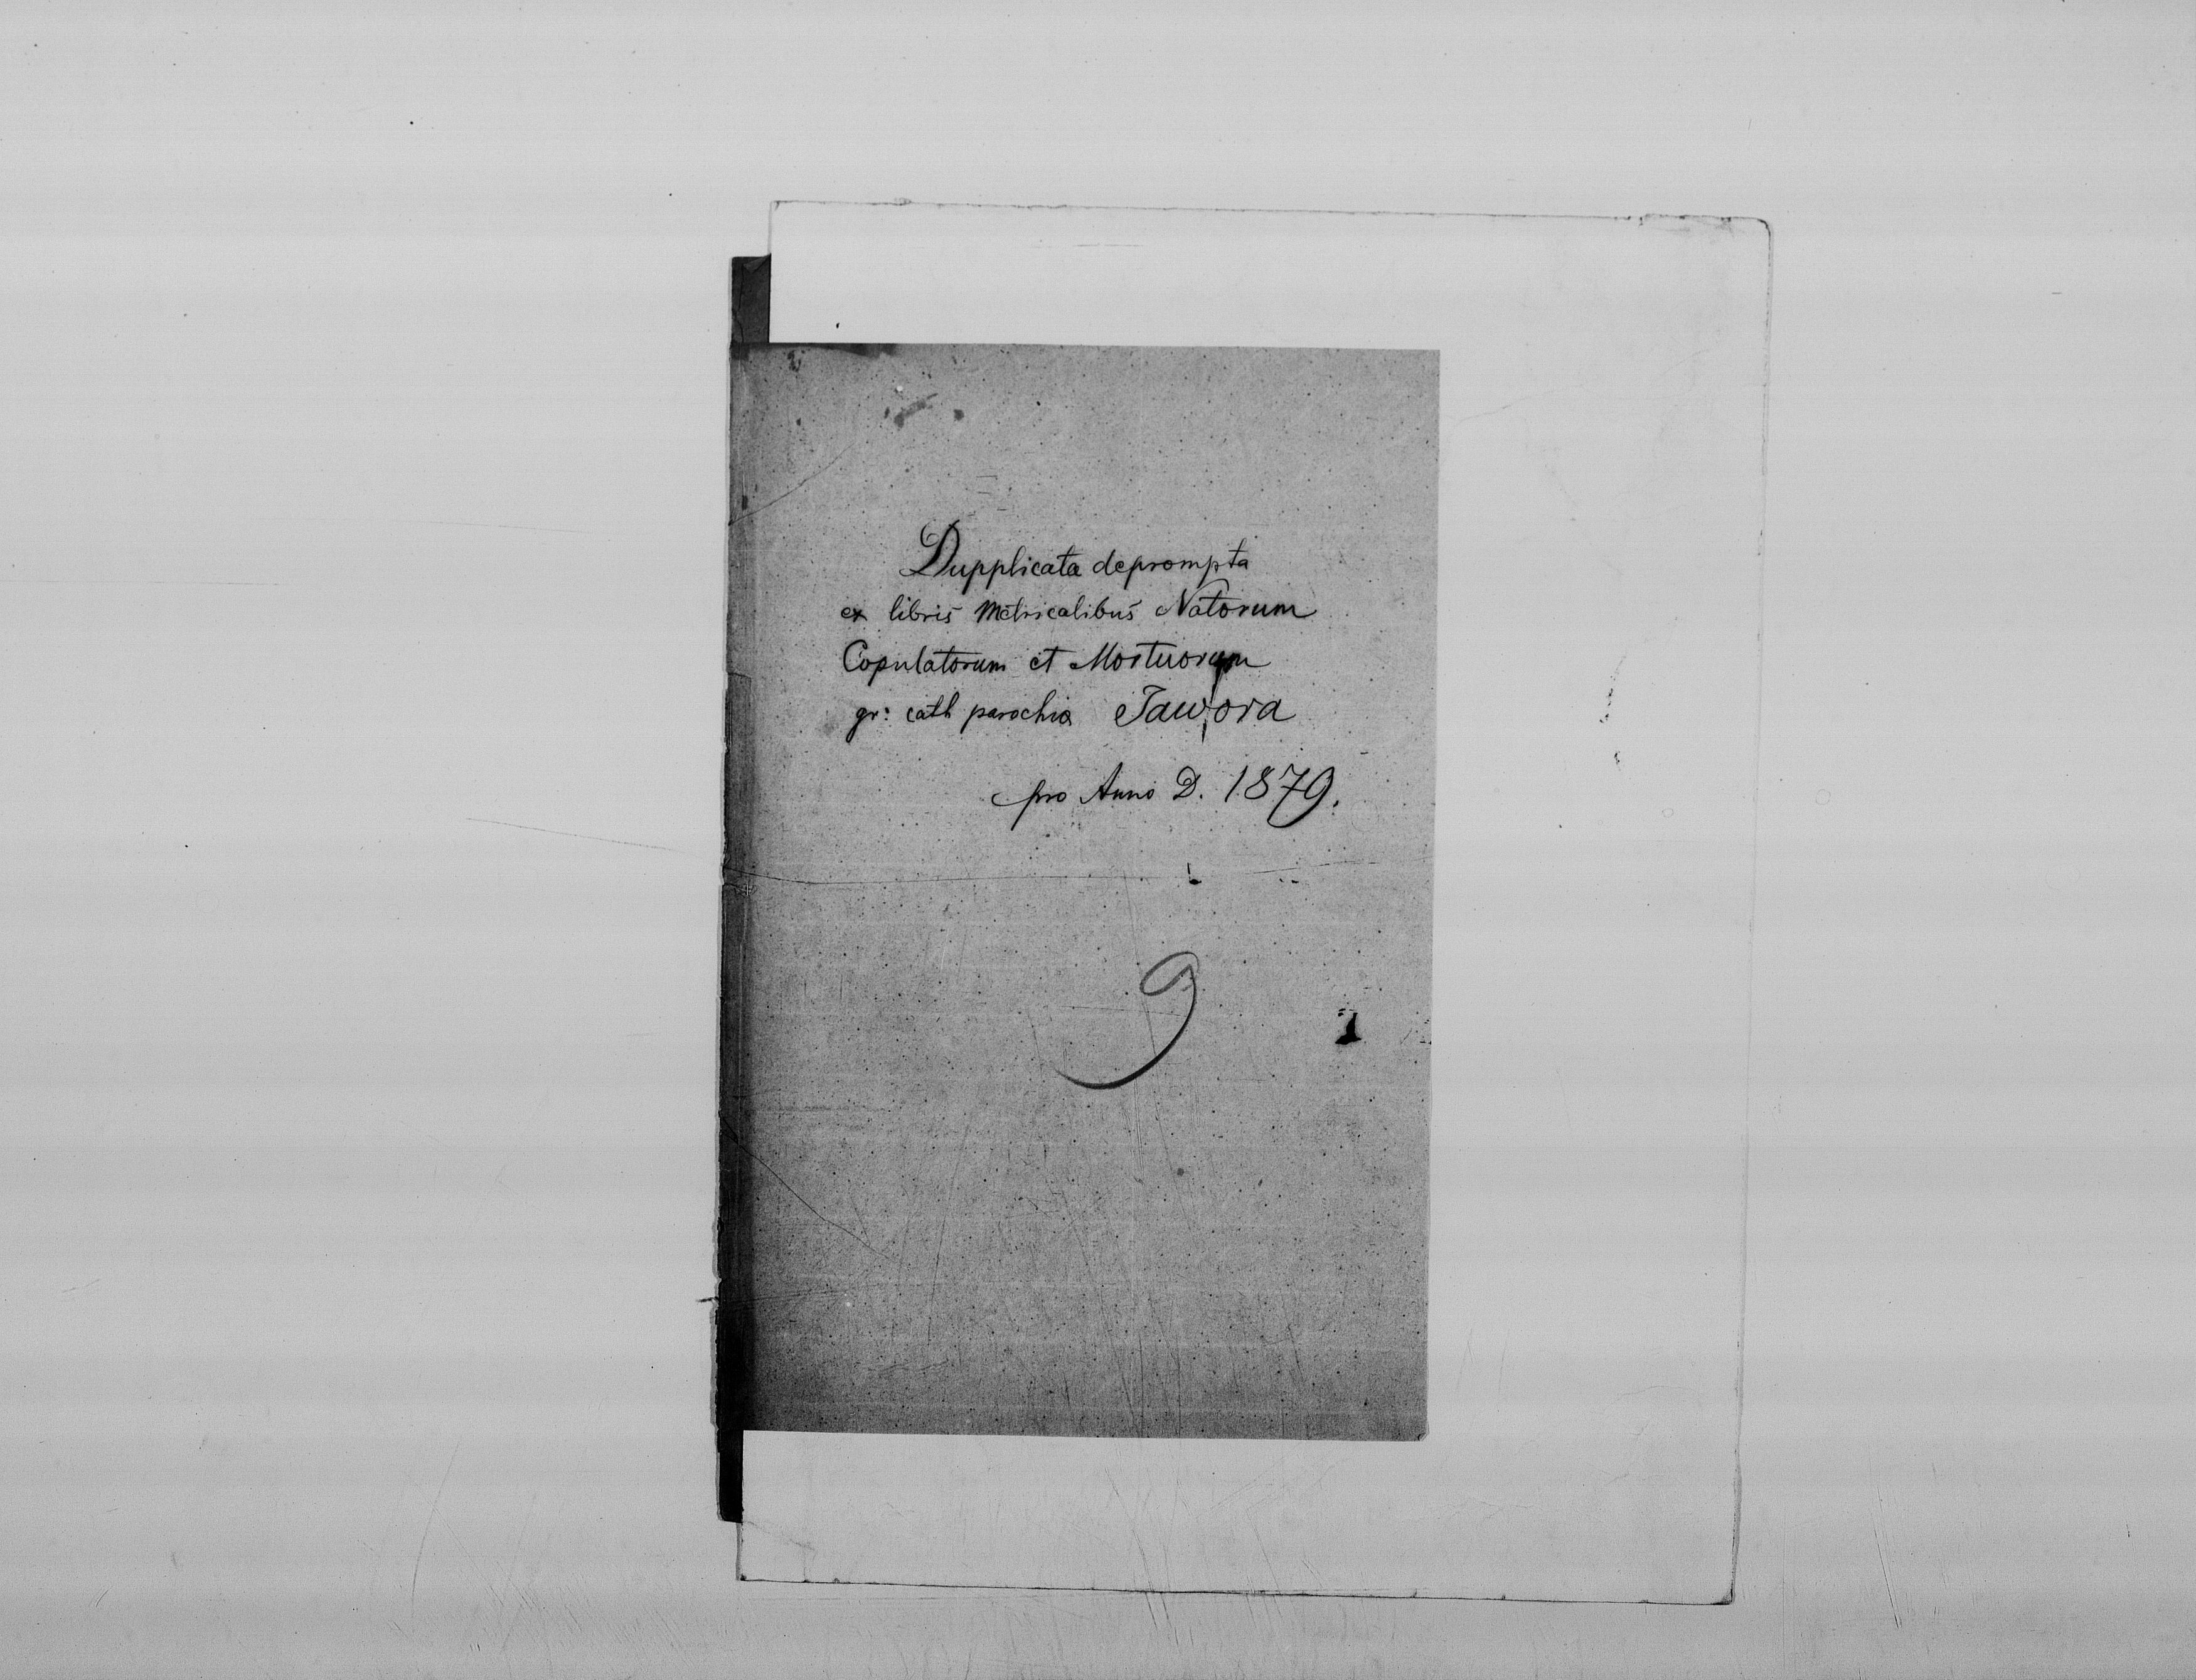 Dupplicata deprompta
ex libris Metricalibus Natorum
Copulatorum et Mortuorum
gr: cath parochia Jawora
pro Anno D. 1879.
9